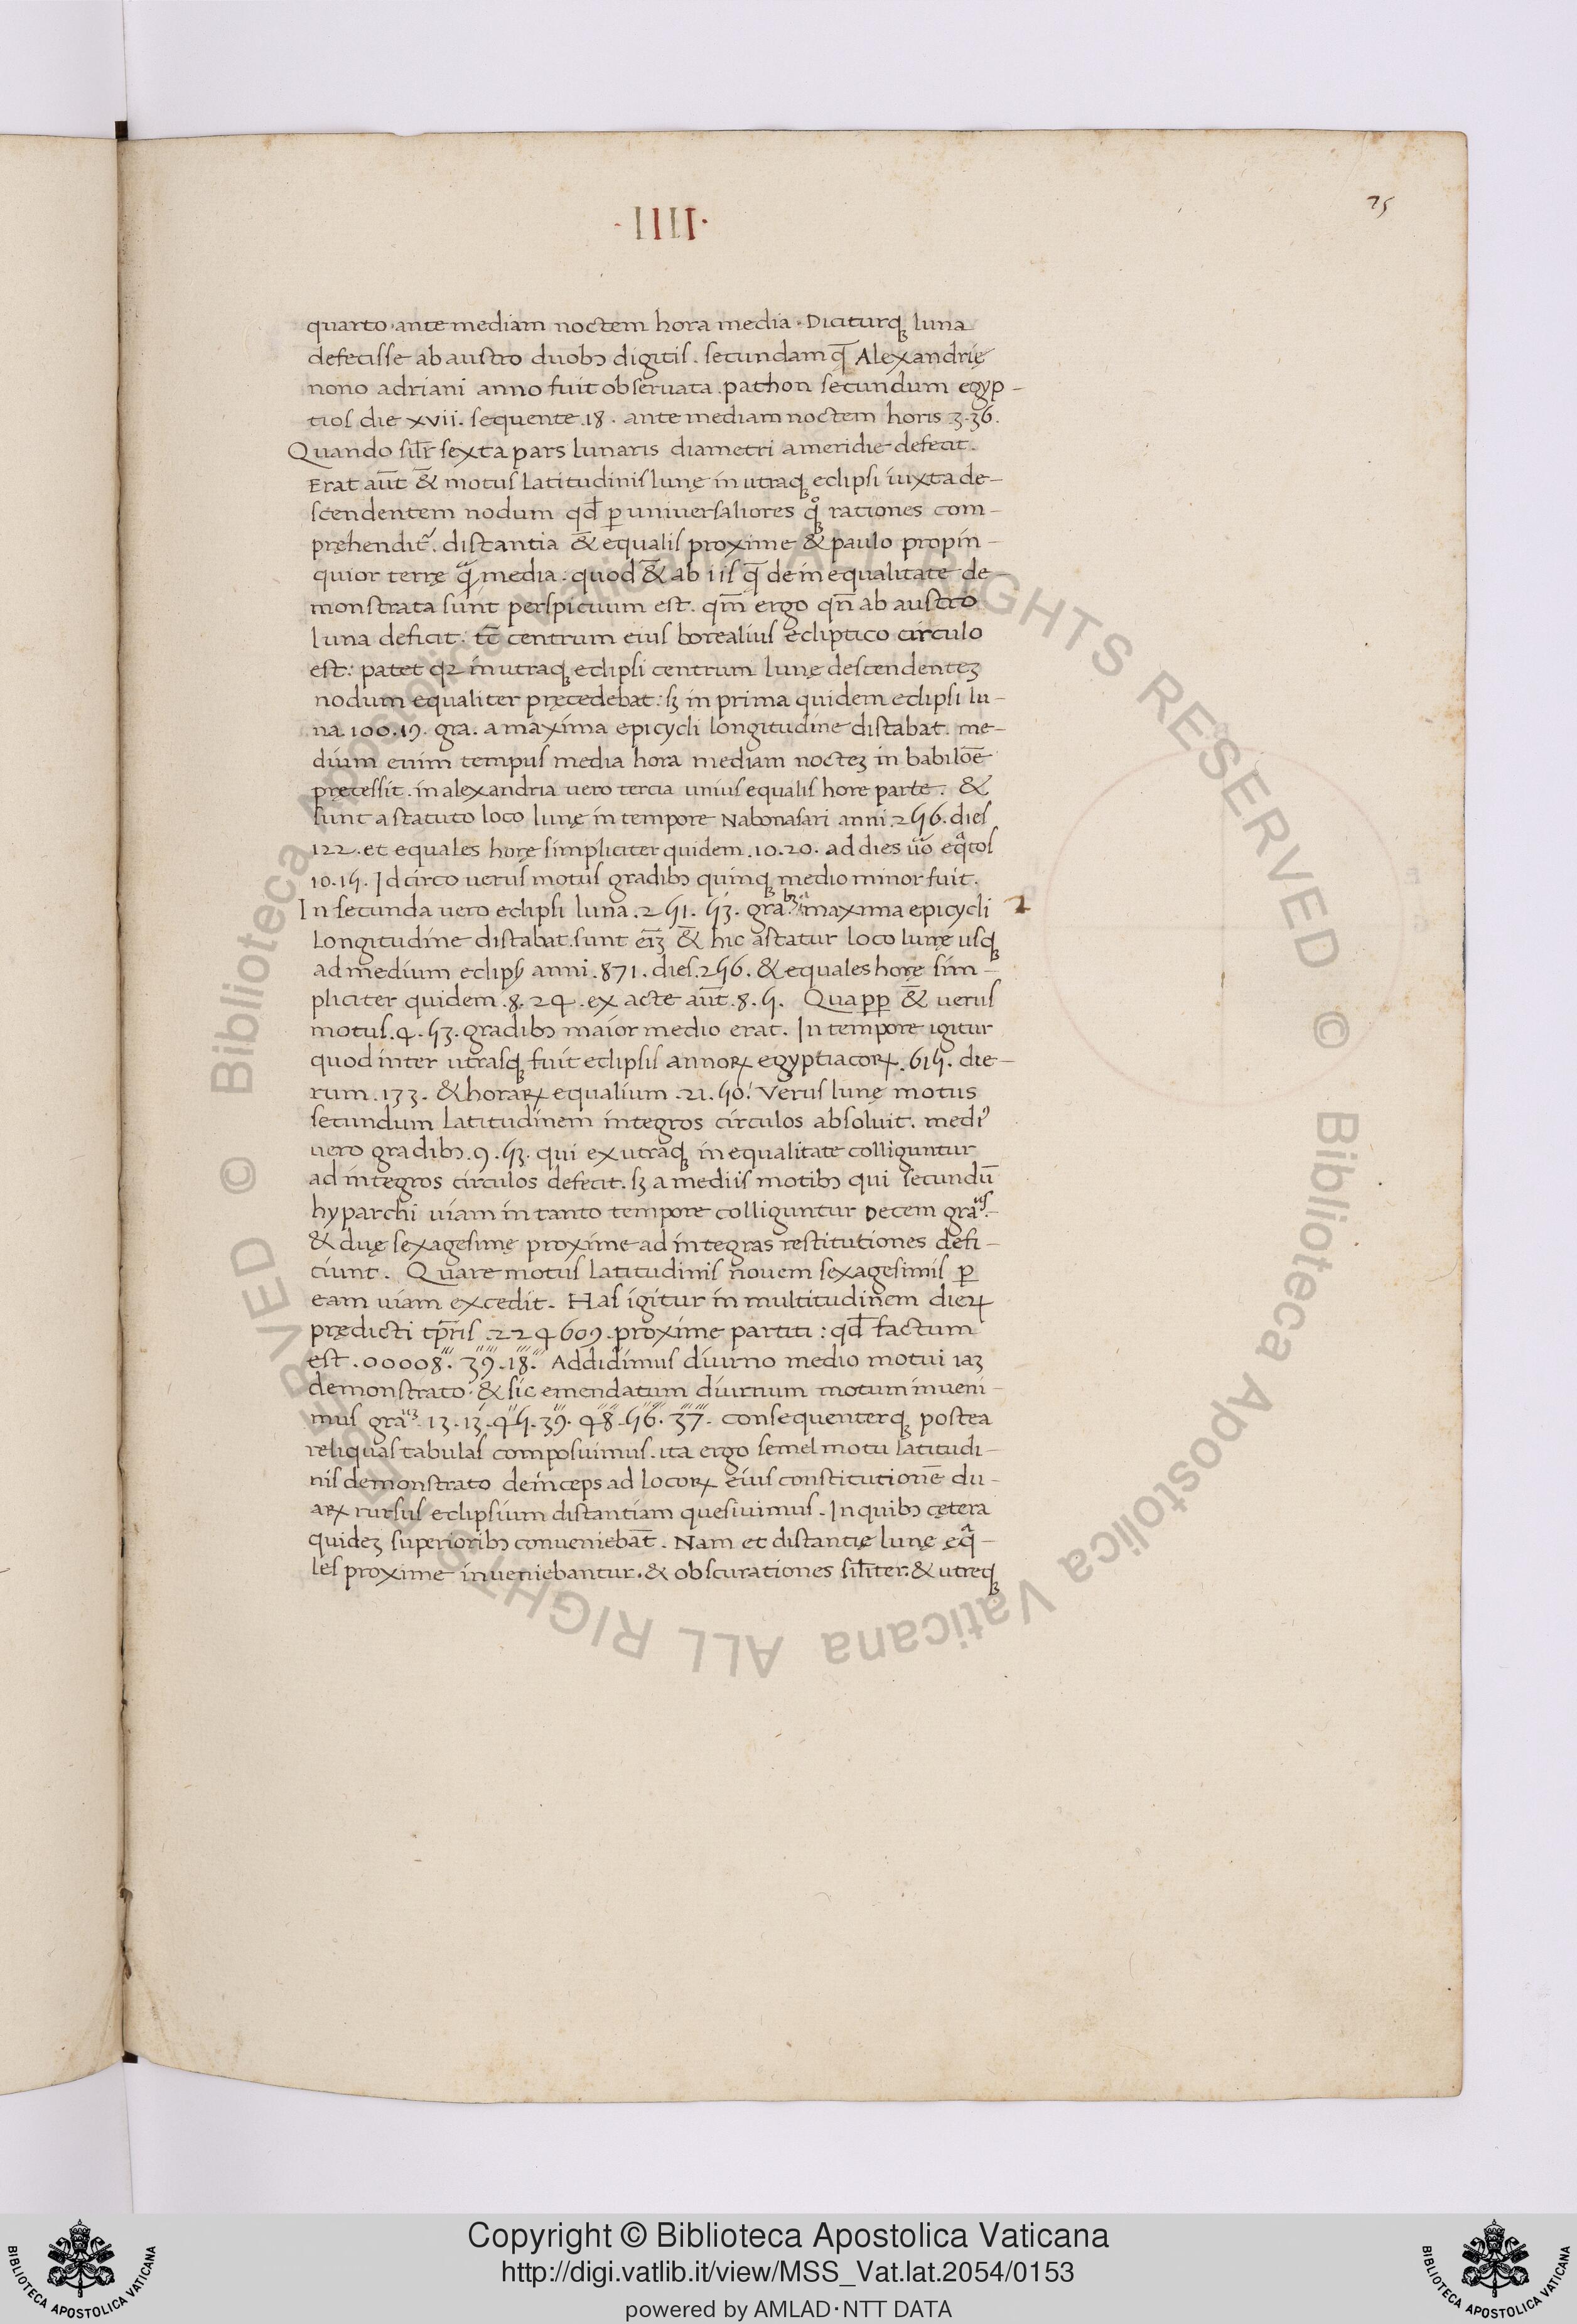 ·IIII·
75
quarto · ante mediam noctem hora media · Diciturqꝫ luna
defecisse ab austro duobꝰ digitis . secundam q̄ Alexandrię
nono adriani anno fuit observata . pathon secundum egyp-
tios die xvii. sequente .18. ante mediam noctem horis 3.36.
Quando sil̄r sexta pars lunaris diametri a meridie defecit.
Erat aūt &̄ motus Latitudinis lunę in utraqꝫ eclipsi iuxta de-
scendentem nodum qđ ꝑ universaliores qͦꝫ rationes com-
pręhendit᷑. distantia &̄ equalis proxime & paulo propin-
quior terrę qᷓ media : quod &̄ ab iis q̄ de inequalitate de-
monstrata sunt perspicuum est. qm̄ ergo qn̄ ab austro
luna deficit. tc̄ centrum eius borealius ecliptico circulo
est: patet qꝛ in utraqꝫ eclipsi centrum lunę descendentez
nodum equaliter pręcedebat : sꝫ in prima quidem eclipsi lu-
na 100.19. gra. a maxima epicycli longitudine distabat. me-
dium enim tempus media hora mediam noctez in babilōe
pręcessit. in alexandria vero tercia unius equalis hore parte. &
sunt a statuto loco lunę in tempore Nabonasari anni .256. dies
122. et equales horę simpliciter quidem .10.20. ad dies u̓o eqᷓtos
10.15. Idcirco verus motus gradibꝰ quinqꝫ medio minor fuit.
In secunda vero eclipsi luna .251.53. gra.bꝫ a maxima epicycli
Longitudine distabat. sunt eī3 &̄ hic a statur loco lunę usqꝫ
ad medium eclipsꝭ anni .871. dies .256. & equales horę sim-
pliciter quidem .8.24. ex acte aūt .8.5. Quapꝑ &̄ verus
motus .4.53. gradibꝰ maior medio erat. In tempore igitur
quod inter utrasqꝫ fuit eclipsis annoꝝ egyptiacoꝝ .615. die-
rum .133. & horaꝝ equalium .21.50. Verus lunę motus
secundum Latitudinem integros circulos absoluit. mediꝰ
vero gradibꝰ .9.53. qui ex utraqꝫ inequalitate colliguntur
ad integros circulos defecit. sꝫ a mediis motibꝰ qui secundū
hyparchi viam in tanto tempore colliguntur Decem graus.
& duę sexagesimę proxime ad integras restitutiones defi-
ciunt. Quare motus latitudinis novem sexagesimis ꝑ
eam viam excedit. Has igitur in multitudinem dieꝝ
prędicti tp̄ris .224609. proxime partiti : qđ factum
est .00008.''' 39.'''' 18.''''' Addidimus diurno medio motui iaꝫ
demonstrato : & sic emendatum diurnum motum inveni-
mus graus 13.13.45.39.48.56.37. consequenterqꝫ postea
reliquas tabulas composuimus. ita ergo semel motu latitudi-
nis demonstrato deinceps ad locoꝝ eius constitutionē du-
aꝝ rursus eclipsium distantiam quesivimus. In quibꝰ cętera
quideꝫ superioribꝰ conveniebāt. Nam et distantię lunę ęqᷓ-
les proxime inveniebantur. & obscurationes sil̄iter. & utreqꝫ
Copyright © Biblioteca Apostolica Vaticana
http://digi.vatlib.it/view/MSS_Vat.lat.2054/0153
powered by AMLAD·NTT DATA